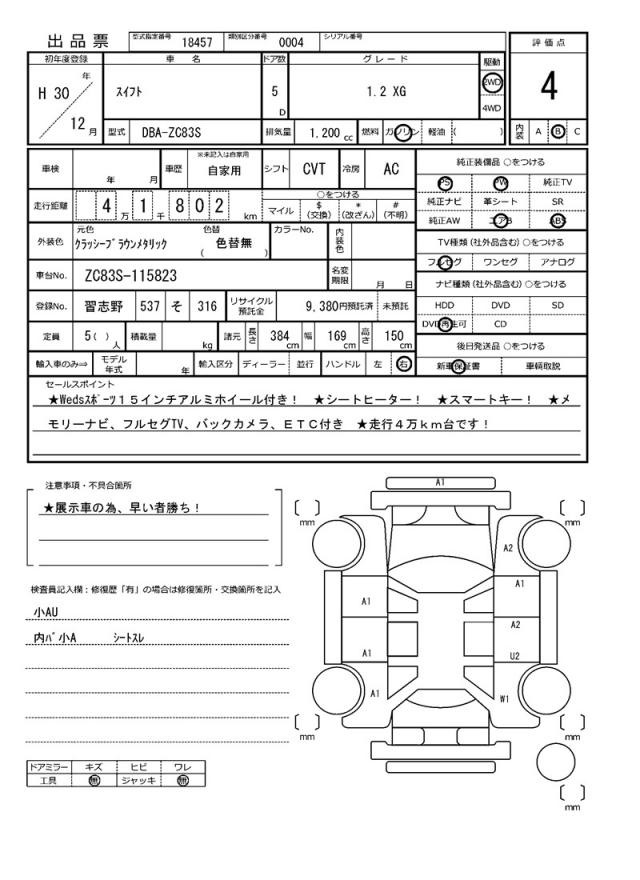 出品票 型式指定番号 18457 類別区分番号 0004 シリアル番号
評価点
4
内装 A B C
初年度登録 車名 ドア数 グレード 駆動
H 30 年 12 月 スイフト 5 D 1.2 XG 2WD 4WD
型式 DBA-ZC83S 排気量 1,200 cc 燃料 ガソリン 軽油 ( )
車検 年 月 車歴 ※未記入は自家用 自家用 シフト CVT 冷房 AC
走行距離 4 万 1 千 8 0 2 km ○をつける マイル $ (交換) * (改ざん) # (不明)
外装色 元色 クラッシーブラウンメタリック 色替 ( 色替無 ) カラーNo. 内装色
車台No. ZC83S-115823 名変期限 月 日
登録No. 習志野 537 そ 316 リサイクル預託金 9,380円預託済 未預託
定員 5( )人 積載量 kg 諸元 長さ 384 cm 幅 169 cm 高さ 150 cm
輸入車のみ⇒ モデル年式 年 輸入区分 ディーラー 並行 ハンドル 左 右
純正装備品 ○をつける
PS PW 純正TV
純正ナビ 革シート SR
純正AW エアB ABS
TV種類(社外品含む)○をつける
フルセグ ワンセグ アナログ
ナビ種類(社外品含む)○をつける
HDD DVD SD
DVD再生可 CD
後日発送品 ○をつける
新車保証書 車輌取説
セールスポイント
★Wedsスポーツ15インチアルミホイール付き! ★シートヒーター! ★スマートキー! ★メ
モリーナビ、フルセグTV、バックカメラ、ETC付き ★走行4万km台です!
注意事項・不具合箇所
★展示車の為、早い者勝ち!
検査員記入欄:修復歴「有」の場合は修復箇所・交換箇所を記入
小AU
内バ小A シートスレ
ドアミラー キズ ヒビ ワレ
工具 無 ジャッキ 無
A1
[ ] mm
[ ] mm
A2
A1 A1
A2
A1 U2
A1 W1
[ ] mm
[ ] mm
[ ] mm